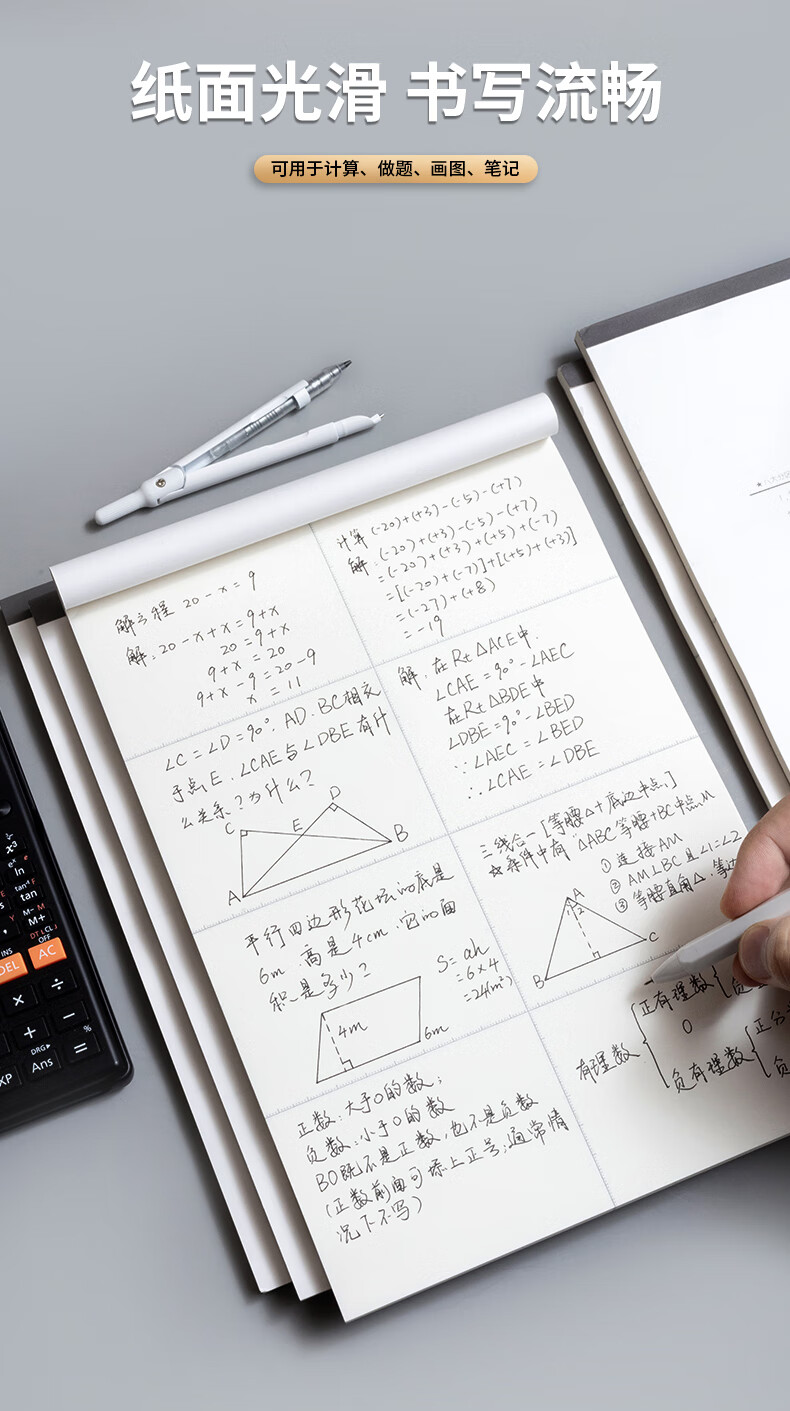 纸面光滑 书写流畅
可用于计算、做题、画图、笔记
解方程 20-x=9
解:20-x+x=9+x
20=9+x
9+x=20
9+x-9=20-9
x=11
计算 (-20)+(+3)-(-5)-(+7)
解:(-20)+(+3)-(-5)-(+7)
=(-20)+(+3)+(+5)+(-7)
=[(-20)+(-7)]+[(+5)+(+3)]
=(-27)+(+8)
=-19
∠C=∠D=90°. AD.BC相交
于点E.∠CAE与∠DBE有什
么关系?为什么?
C
E
D
B
A
解.在Rt△ACE中.
∠CAE=90°-∠AEC
在Rt△BDE中
∠DBE=90°-∠BED
∵∠AEC=∠BED
∴∠CAE=∠DBE
平行四边形花坛的底是
6m 高是4cm.它的面
积是多少?
S=ah
=6×4
=24(m²)
4m
6m
三线合一[等腰△+底边中点]
☆条件中有"△ABC等腰+BC中点M
①连接AM
②AM⊥BC且∠1=∠2
③等腰直角△.等边
A
1 2
B
C
正数:大于0的数;
负数:小于0的数
BO既不是正数,也不是负数
(正数前面可添上正号;通常情
况下不写)
有理数
正有理数
0
负有理数
正分
负
x³
eˣ
ln
tan⁻¹
tan
M-
M+
DT CL
INS
DEL
OFF
AC
×
÷
+
−
DRG▶
%
EXP
Ans
=